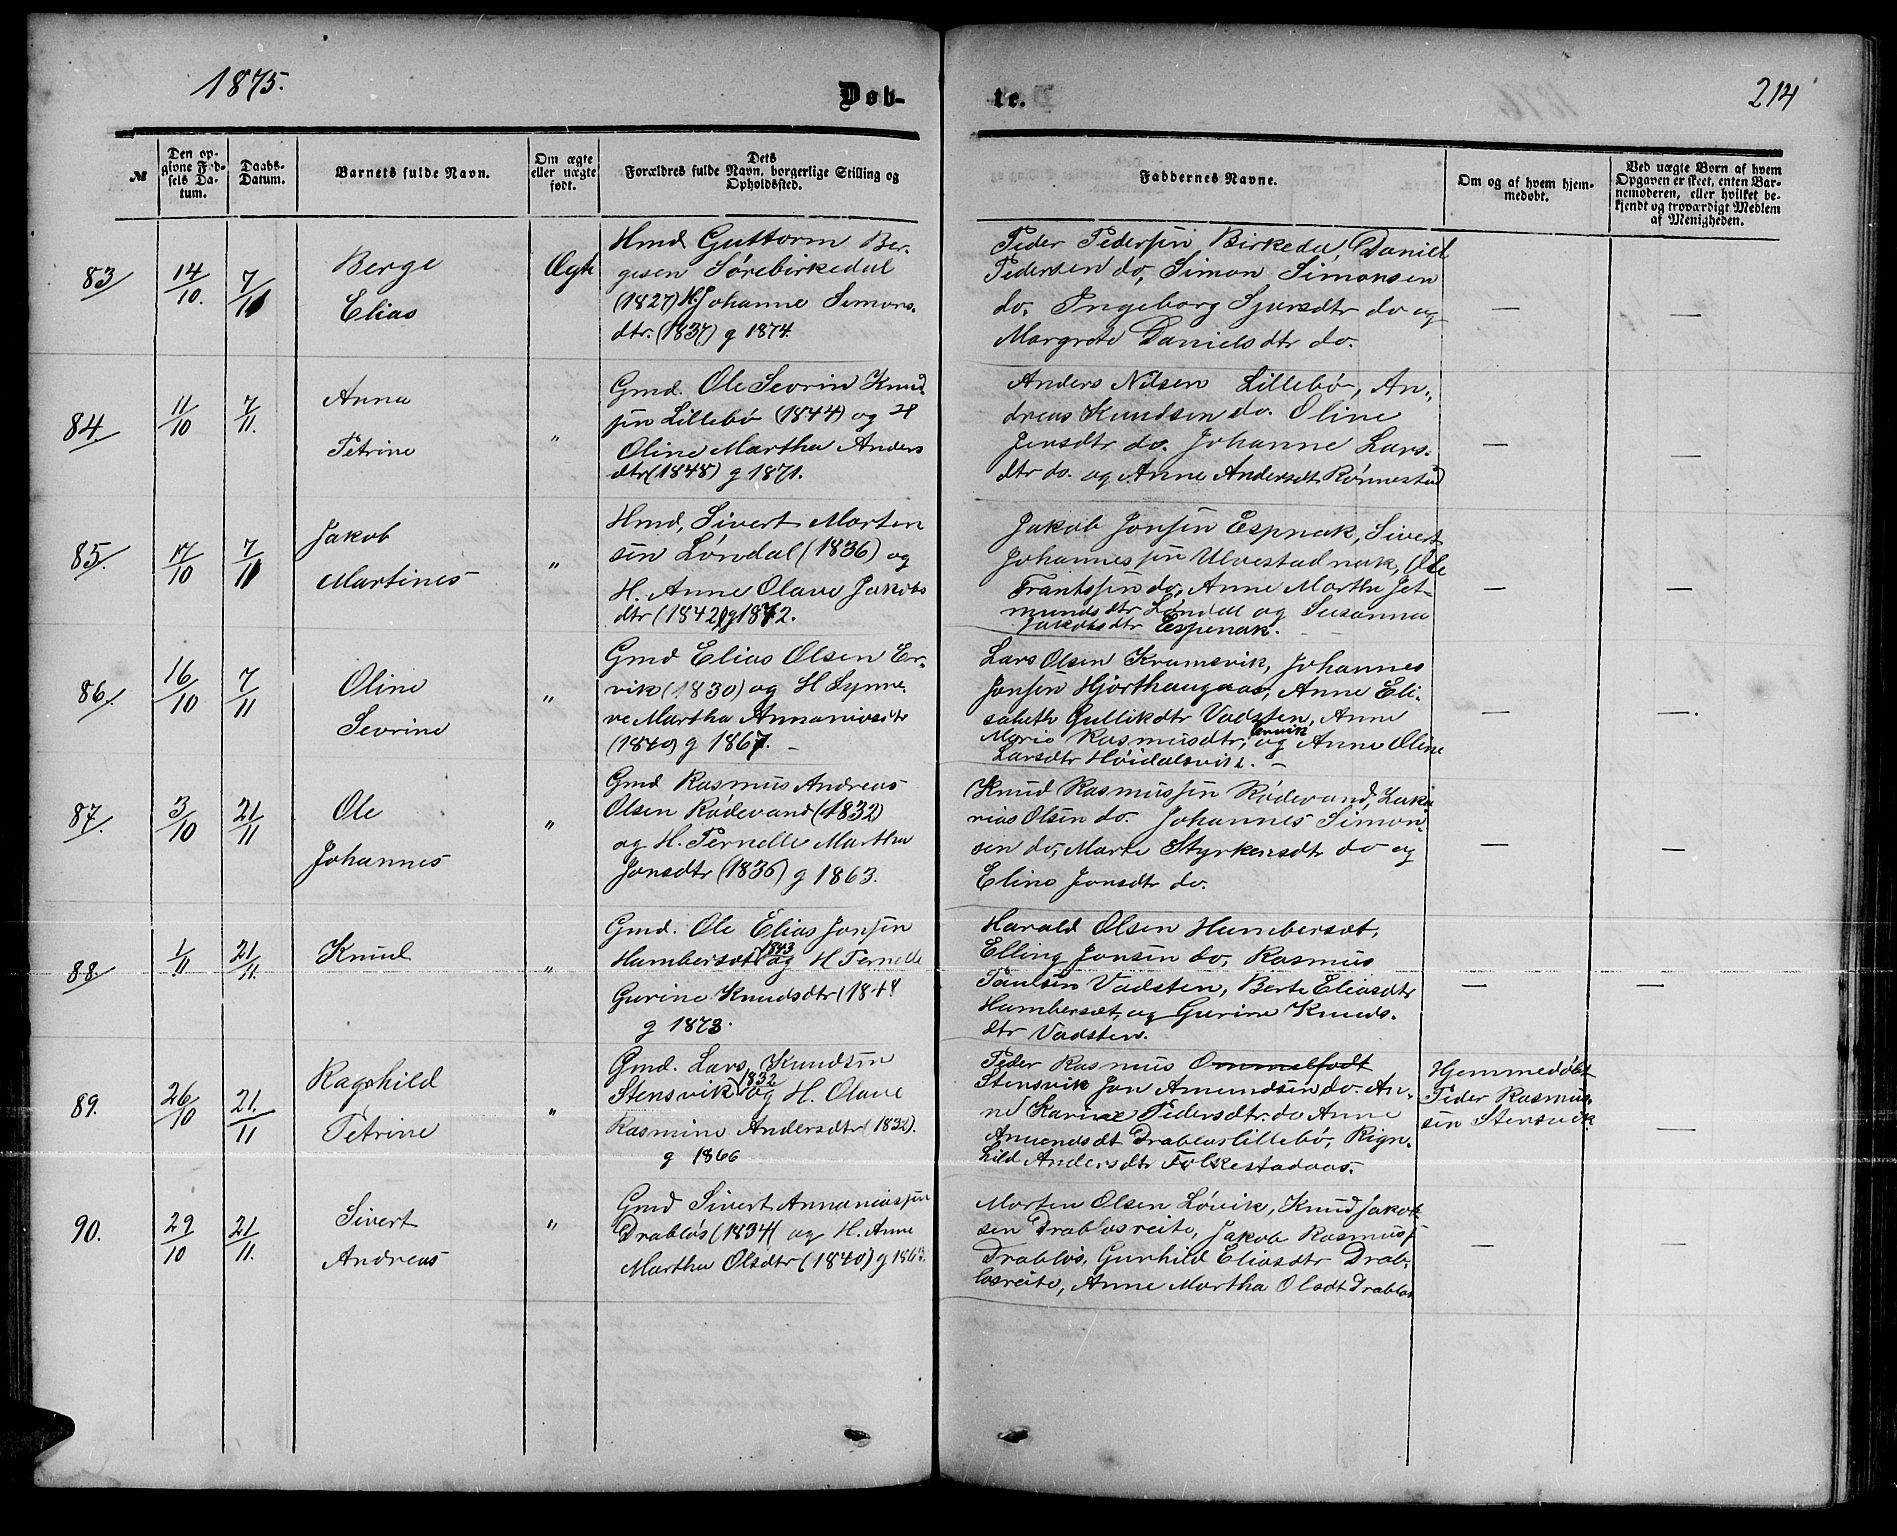 1875.
Døb-
te.
214
№
Den op-
givne Fød-
sels Da-
tum.
Daabs-
Datum.
Barnets fulde Navn.
Om ægte
eller uægte
født.
Dets
Forældres fulde Navn, borgerlige Stilling og
Opholdssted.
Faddernes Navne.
Om og af hvem hjem-
medøbt.
Ved uægte Børn af hvem
Opgaven er skeet, enten Bar-
nemoderen, eller hvilket be-
kjendt og troværdigt Medlem
af Menigheden.
83 14/10. 7/11
Berge
Elias
Ægte
Hmd Guttorm Ber-
gesen Sørebirkedal
(1827) H. Johanne Simons-
dtr. (1837) g 1874.
Peder Pedersen Birkedal, Daniel
Pedersen do, Simon Simonsen
do. Ingeborg Sjursdtr do og
Margrete Danielsdtr do.
— —
84 11/10 7/11.
Anna
Petrine
"
Gmd. Ole Sevrin Knud
sen Lillebø (1844) og H
Oline Martha Anders
dtr (1848) g 1871.
Anders Nilsen Lillebø, An-
dreas Knudsen do. Oline
Jensdtr do. Johanne Lars-
dtr do. og Anne Andersdt Rønnestad
— —
85. 17/10 7/11
Jakob
Martines
"
Hmd, Sivert Morten
sen Løvdal (1836) og
H. Anne Olave Jakobs
dtr (1842) g 1872.
Jakob Jonsen Espenak, Sivert
Johannessen Ulvestadnak, Ole
Frantssen do, Anne Martha Jet-
mundsdtr Løndal og Susanna
Jakobsdtr Espenak.
— —
86. 16/10 7/11
Oline
Sevrine
"
Gmd Elias Olsen Er-
vik (1830) og H Synne
ve Martha Annaniasdtr
(1840) g 1867. –
Lars Olsen Kramsvik, Johannes
Jonsen Hjorthaugaas, Anne Eli-
sabeth Gullikdtr Vadsten, Anne
Marie Rasmusdtr, Ervik og Anne Oline
Larsdtr Høidalsvik. –
— —.
87. 3/10 21/11
Ole
Johannes
"
Gmd Rasmus Andreas
Olsen Rødevand (1832)
og H. Pernelle Martha
Jonsdtr (1836) g 1863.
Knud Rasmussen Rødevand, Zaka
rias Olsen do. Johannes Simon-
sen do, Marte Styrkersdtr do og
Eline Jonsdtr do.
— —
88 1/11 21/11.
Knud
"
Gmd. Ole Elias Jonsen
Humberset 1843 og H Pernelle
Gurine Knudsdtr (1848
g 1873.
Harald Olsen Humberset,
Elling Jonsen do, Rasmus
Paulsen Vadsten, Berte Eliasdtr
Humberset, og Gurine Knuds-
dtr Vadsten.
— —
89. 26/10 21./11
Ragnhild
Petrine
"
Gmd. Lars Knudsen
Stensvik 1832 og H. Olave
Rasmine Andersdtr (1832).
g 1866
Peder Rasmus Ommelfodt
Stensvik Jon Amundsen do. An-
ne Karine Pedersdtr do Anne
Amundsdt Drabløslillebø, Rign-
hild Andersdtr Folkestadaas.
Hjemmedøbt
Peder Rasmus-
sen Stensvik
—
90. 29/10 21/11.
Sivert
Andreas
"
Gmd Sivert Annaniassen
Drabløs (1834( og H. Anne
Martha Olsdtr (1840) g 1863.
Morten Olsen Løvik, Knud Jakob
sen Drabløsreite, Jakob Rasmuss
Drabløs, Gunhild Eliasdtr Drab-
løsreite, Anne Martha Olsdt Drabløs
— —